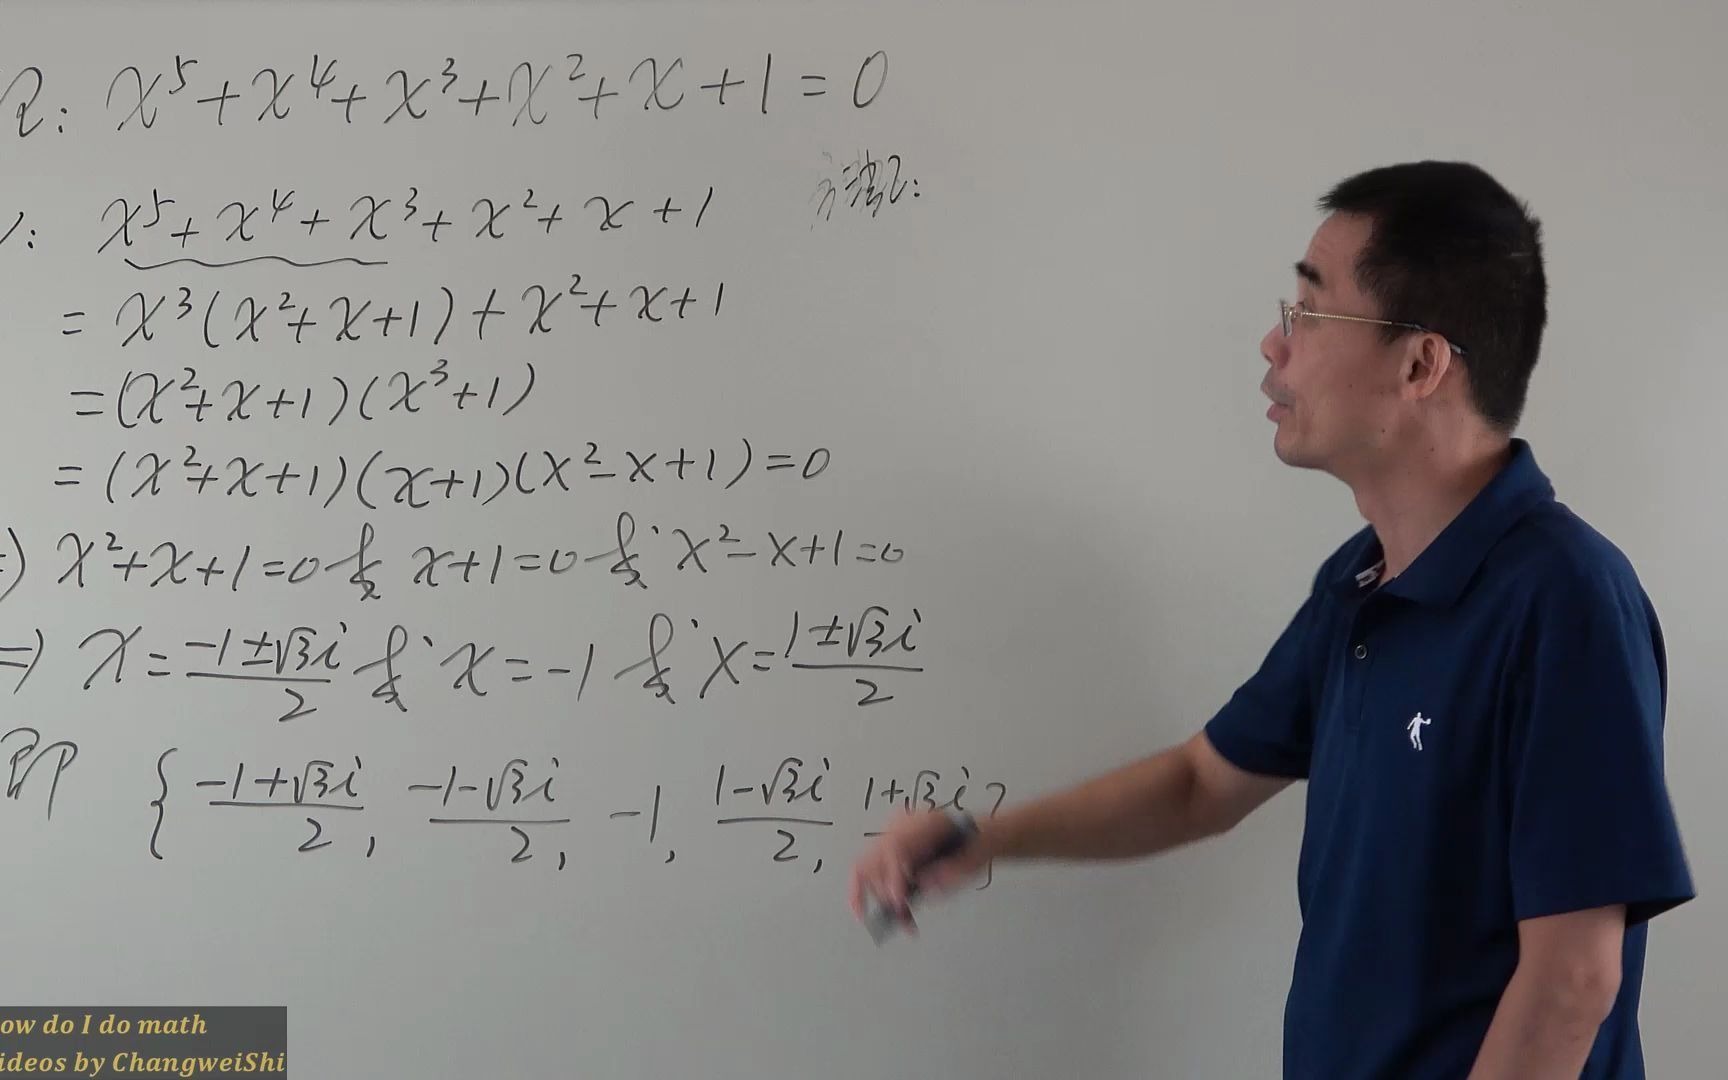 : x⁵+x⁴+x³+x²+x+1=0
方法2:
: x⁵+x⁴+x³+x²+x+1
=x³(x²+x+1)+x²+x+1
=(x²+x+1)(x³+1)
=(x²+x+1)(x+1)(x²-x+1)=0
⇒ x²+x+1=0 或 x+1=0 或 x²-x+1=0
⇒ x=(-1±√3i)/2 或 x=-1 或 x=(1±√3i)/2
即 {(-1+√3i)/2, (-1-√3i)/2, -1, (1-√3i)/2, 1+√3i}
ow do I do math
ideos by ChangweiShi